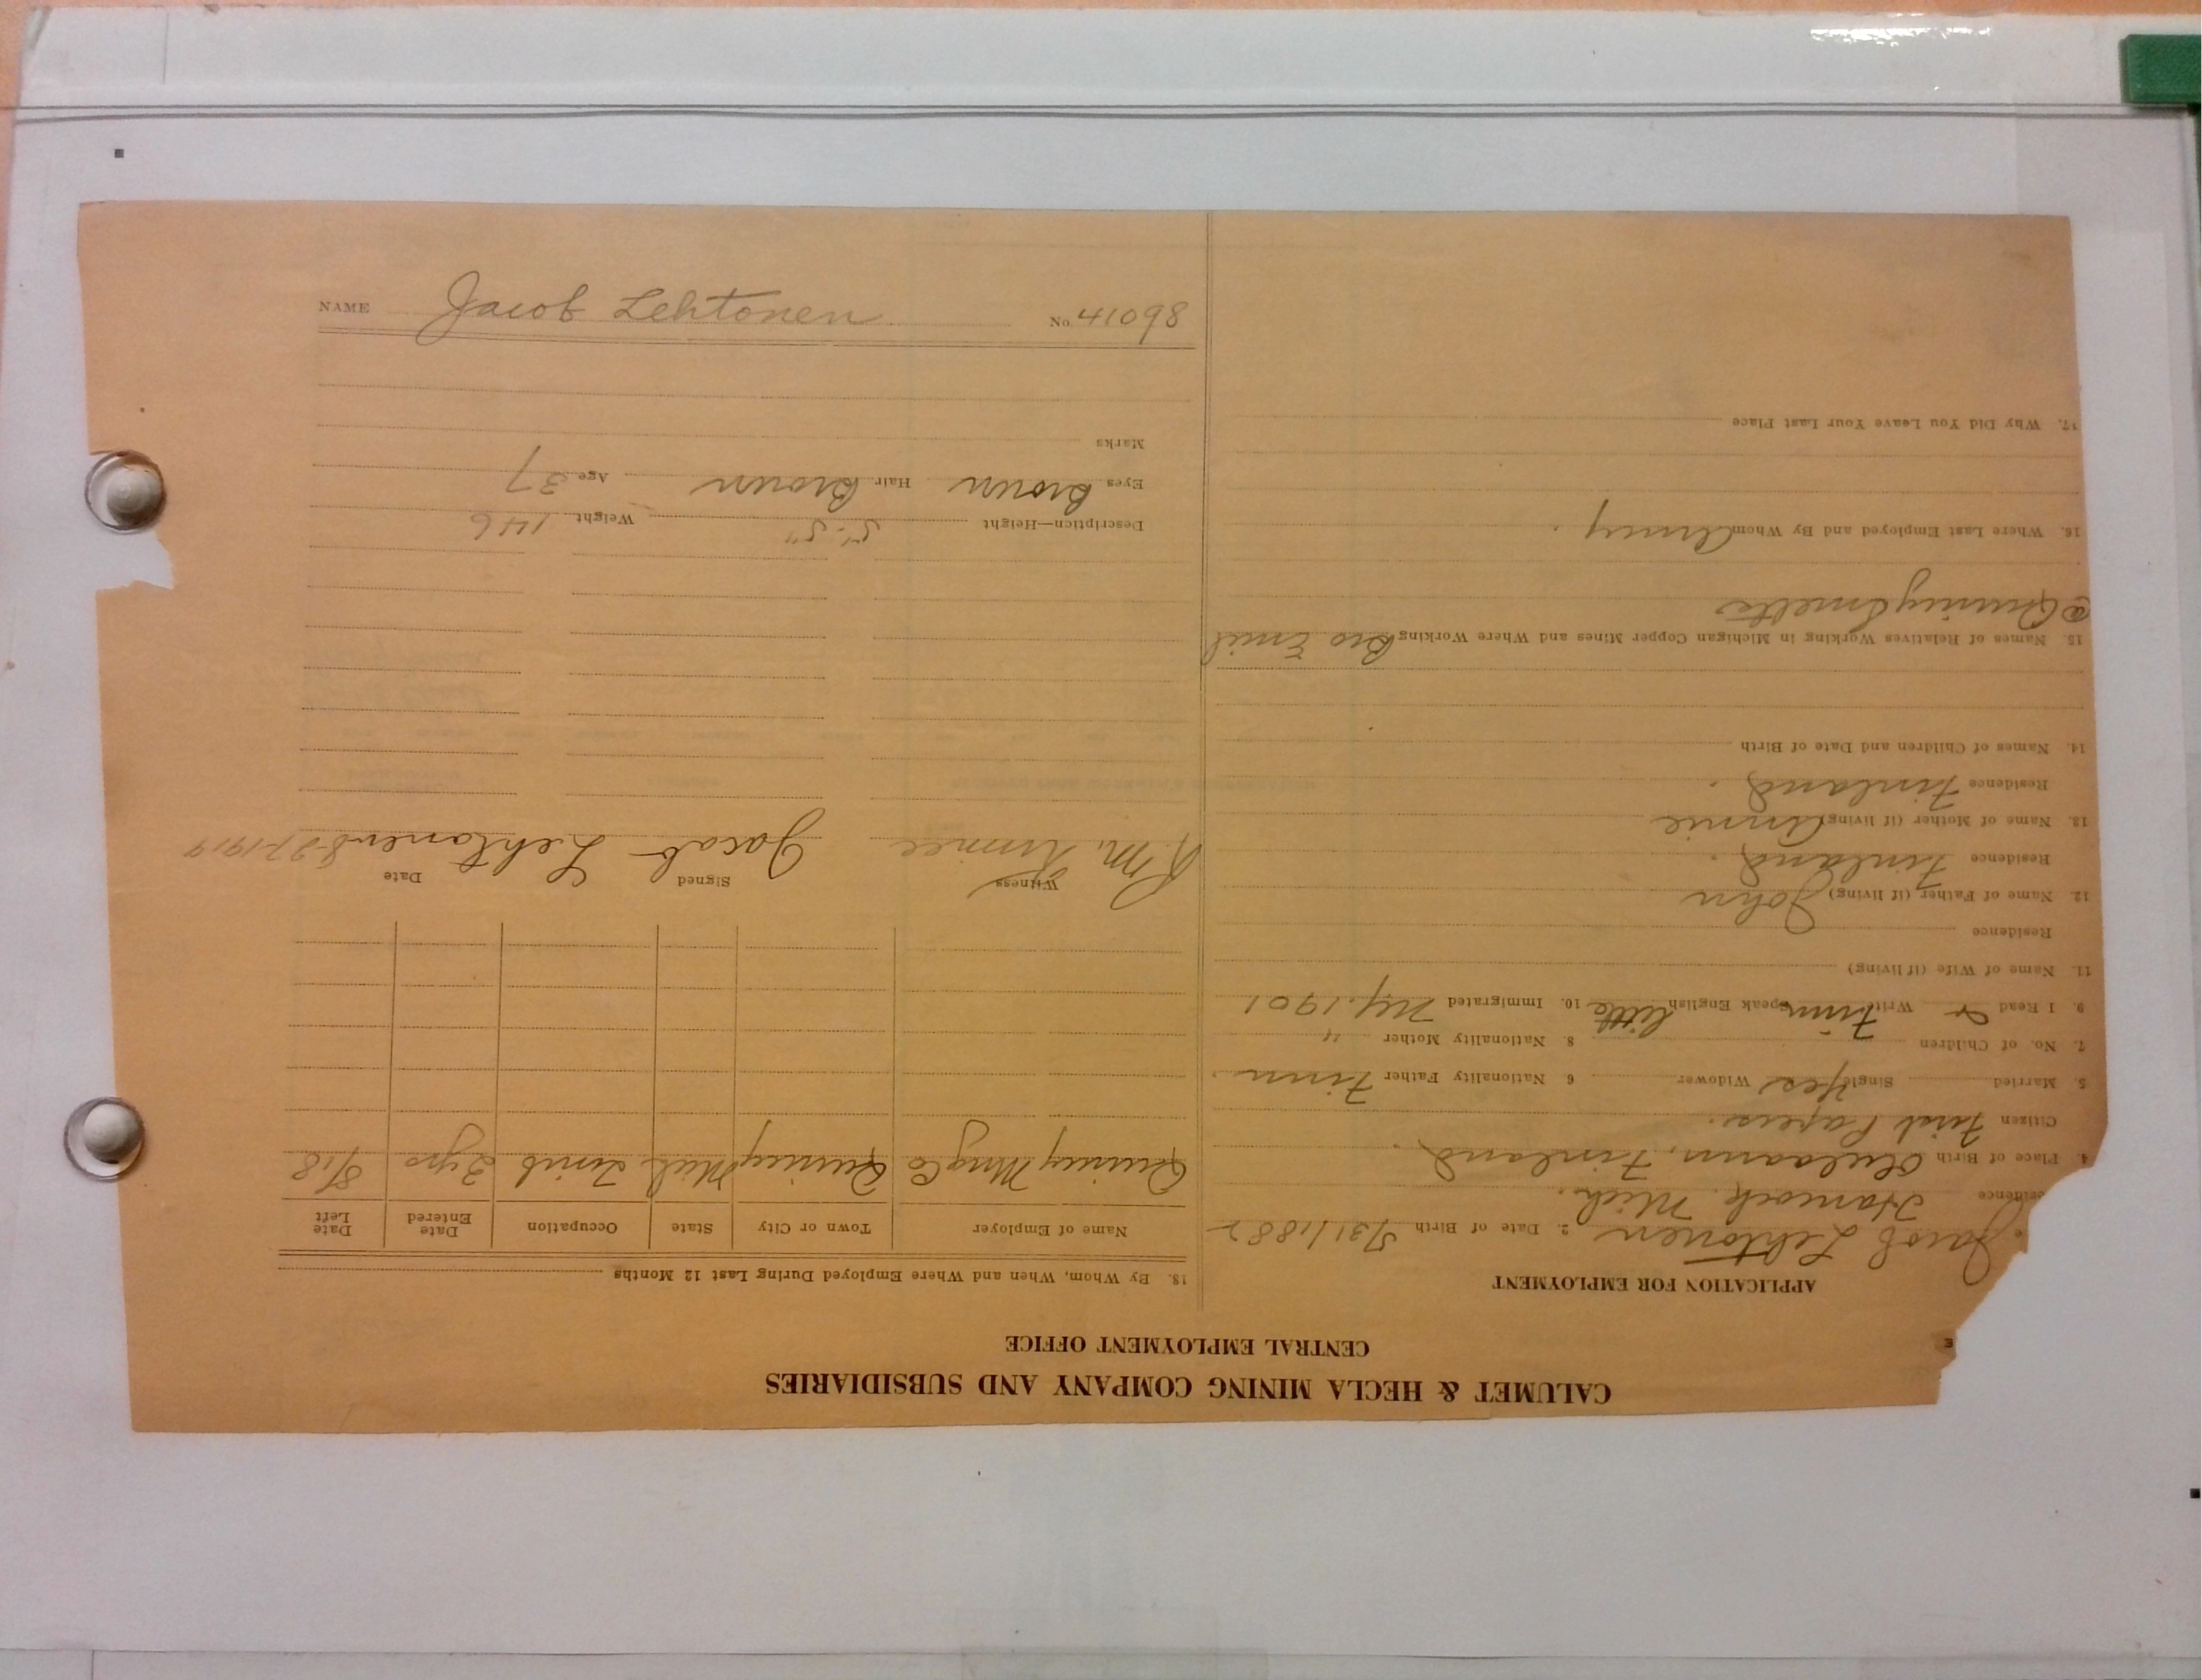 NAME Jacob Lehtonen No. 41098
CALUMET & HECLA MINING COMPANY AND SUBSIDIARIES
CENTRAL EMPLOYMENT OFFICE
APPLICATION FOR EMPLOYMENT
e Jacob Lehtonen 2. Date of Birth 5/31/1882
sidence Hancock Mich.
4. Place of Birth Finland.
Citizen First Papers.
5. Married Single Yes Widower 6. Nationality Father Finn
7. No. of Children 8. Nationality Mother "
9. I Read & Write Finn Speak English little 10. Immigrated Ny. 1901
11. Name of Wife (if living)
Residence
12. Name of Father (if living) John
Residence Finland.
13. Name of Mother (if living) Annie
Residence Finland.
14. Names of Children and Date of Birth
15. Names of Relatives Working in Michigan Copper Mines and Where Working Bro Emil
@ Quincy Smelter
16. Where Last Employed and By Whom Army.
17. Why Did You Leave Your Last Place
18. By Whom, When and Where Employed During Last 12 Months
Name of Employer Town or City State Occupation Date Entered Date Left
Quincy Mng Co Quincy Mich 2 yrs 5/18
Witness Signed Date
R. M. Jacob Lehtonen 5-27-1919
Description—Height 5'-5" Weight 146
Eyes Brown Hair Brown Age 37
Marks